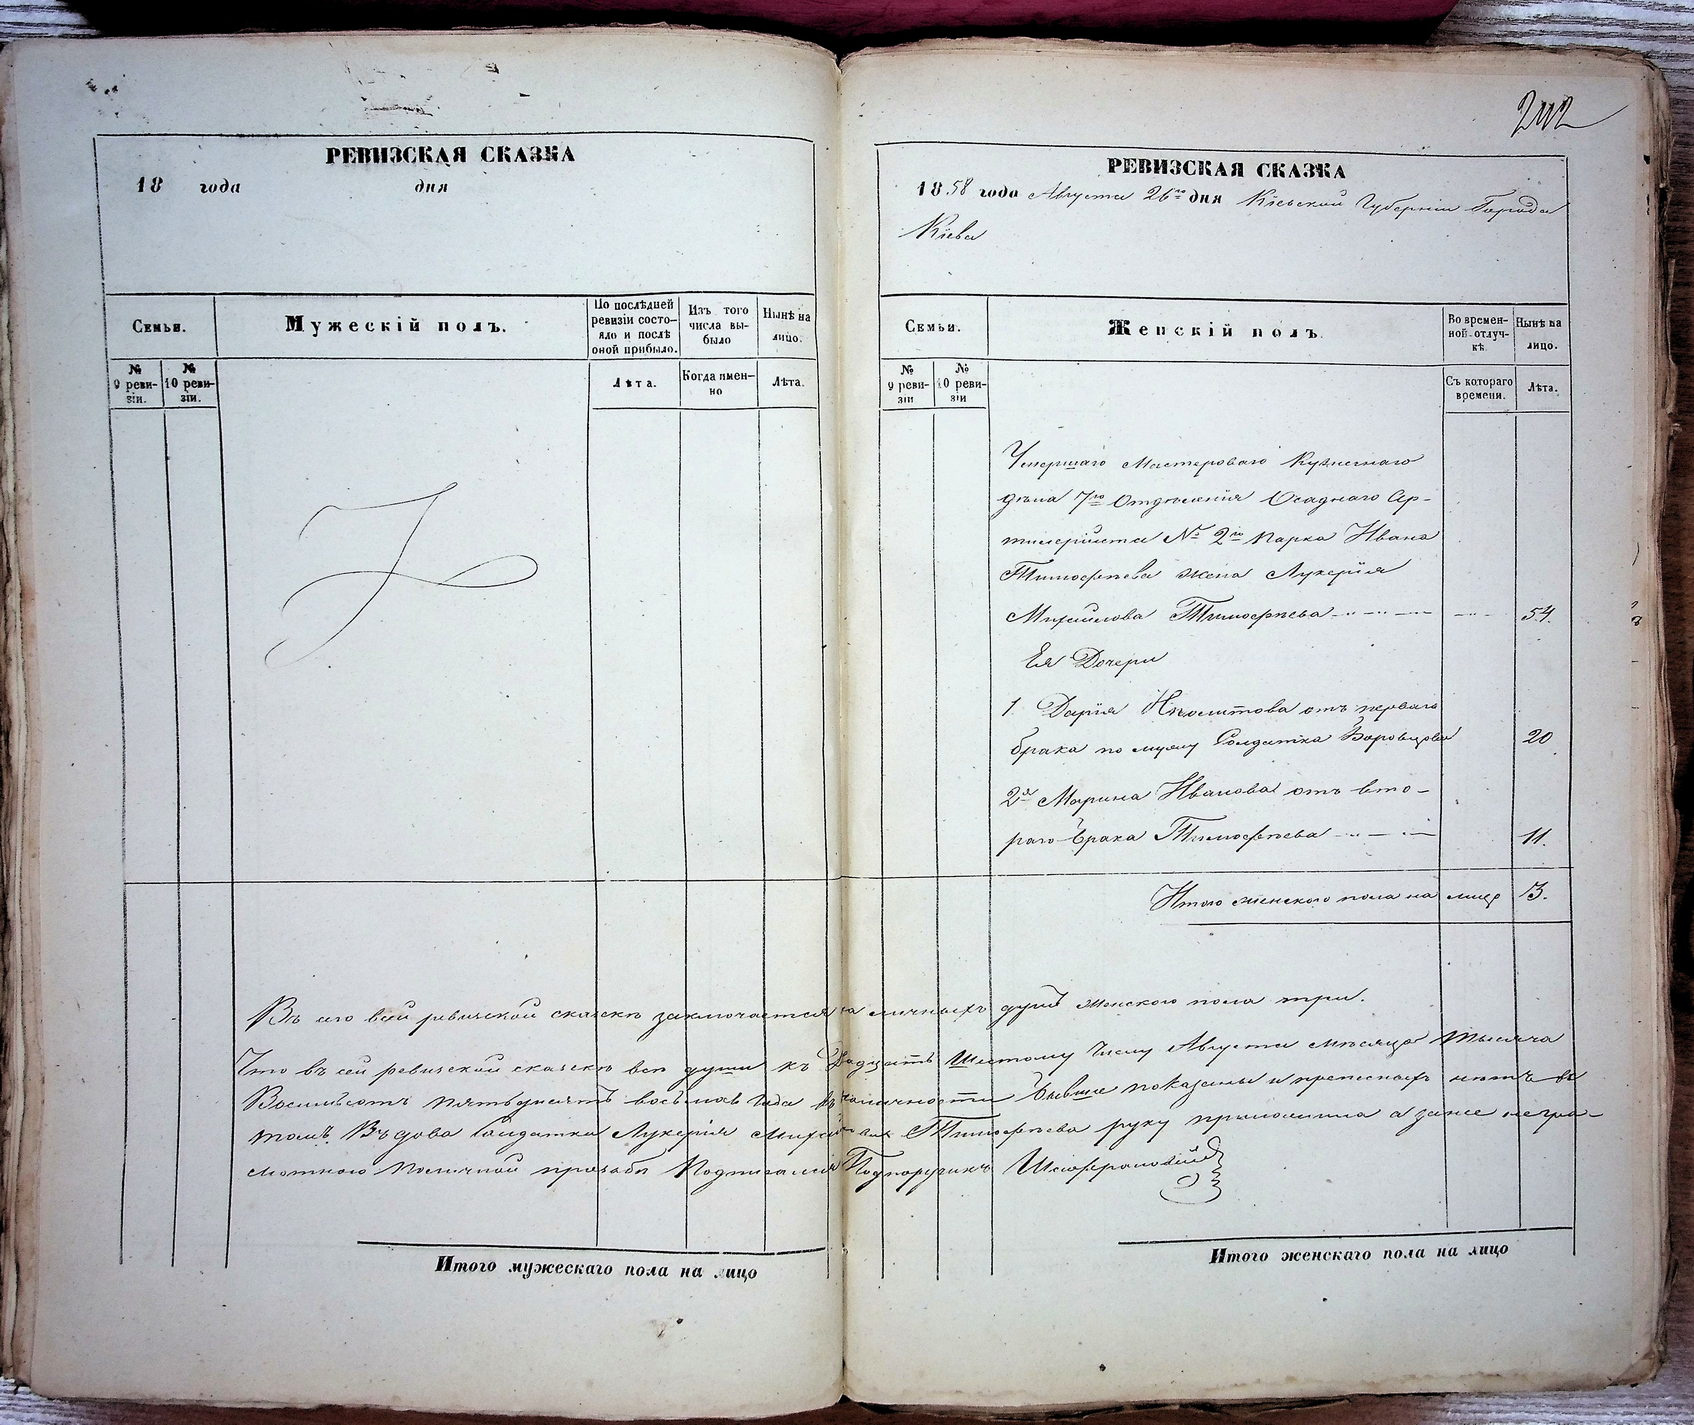 РЕВИЗСКАЯ СКАЗКА
18 года дня
Семьи.
Мужескій полъ.
По послѣдней ревизіи состояло и послѣ оной прибыло.
Изъ того числа выбыло
Нынѣ на лицо.
№ 9 ревизіи.
№ 10 ревизіи.
Лѣта.
Когда именно
Лѣта.
242
РЕВИЗСКАЯ СКАЗКА
1858 года Августа 26го дня Кіевской Губерніи Города
Кіева
Семьи.
Женскій полъ.
Во временной отлучкѣ
Нынѣ на лицо.
№ 9 ревизіи
№ 10 ревизіи
Съ котораго времени.
Лѣта.
Умершаго Мастероваго Кузнечнаго
дѣла 7го Отдѣленія Осаднаго Ар-
№ 2го парка Ивана
Тимофѣева жена Лукерія
Михайлова Тимофѣева 54.
Ея Дочери
1. Дарія Иполитова отъ перваго
брака по мужу Солдатка 20
2я Марина Иванова отъ вто-
раго брака Тимофѣева 11.
Итого женскаго пола на лицо 3.
Въ сей ревизской сказкѣ заключается на личныхъ душъ женского пола три.
Что въ сей ревизской сказкѣ всѣ души къ Двадцать Шестому Числу Августа мѣсяца Тысяча
Восемьсотъ пятьдесятъ восьмаго Года въ наличности бывшіе показаны и прописныхъ нѣтъ въ
томъ Вдова Солдатка Лукерія Михайлова Тимофѣева руку приложила а за нее негра-
мотною по личной прозьбѣ Подписался Подпоручикъ
Итого мужескаго пола на лицо
Итого женскаго пола на лицо